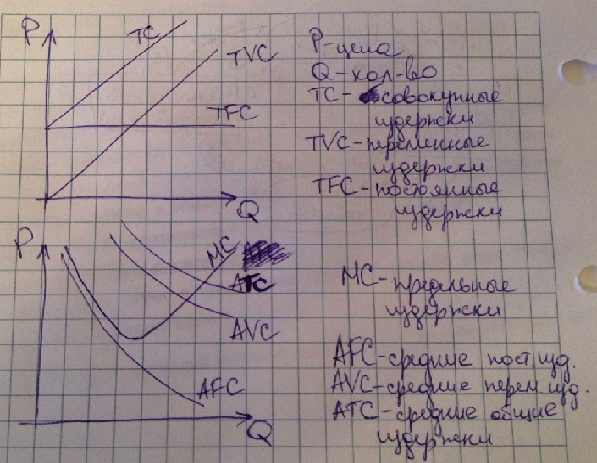 P
TC
TVC
TFC
Q
P-цена
Q-кол-во
TC- совокупные
издержки
TVC-переменные
издержки
TFC-постоянные
издержки
P
MC
ATC
AVC
AFC
Q
MC-предельные
издержки
AFC-средние пост.изд.
AVC-средние перем.изд.
ATC-средние общие
издержки